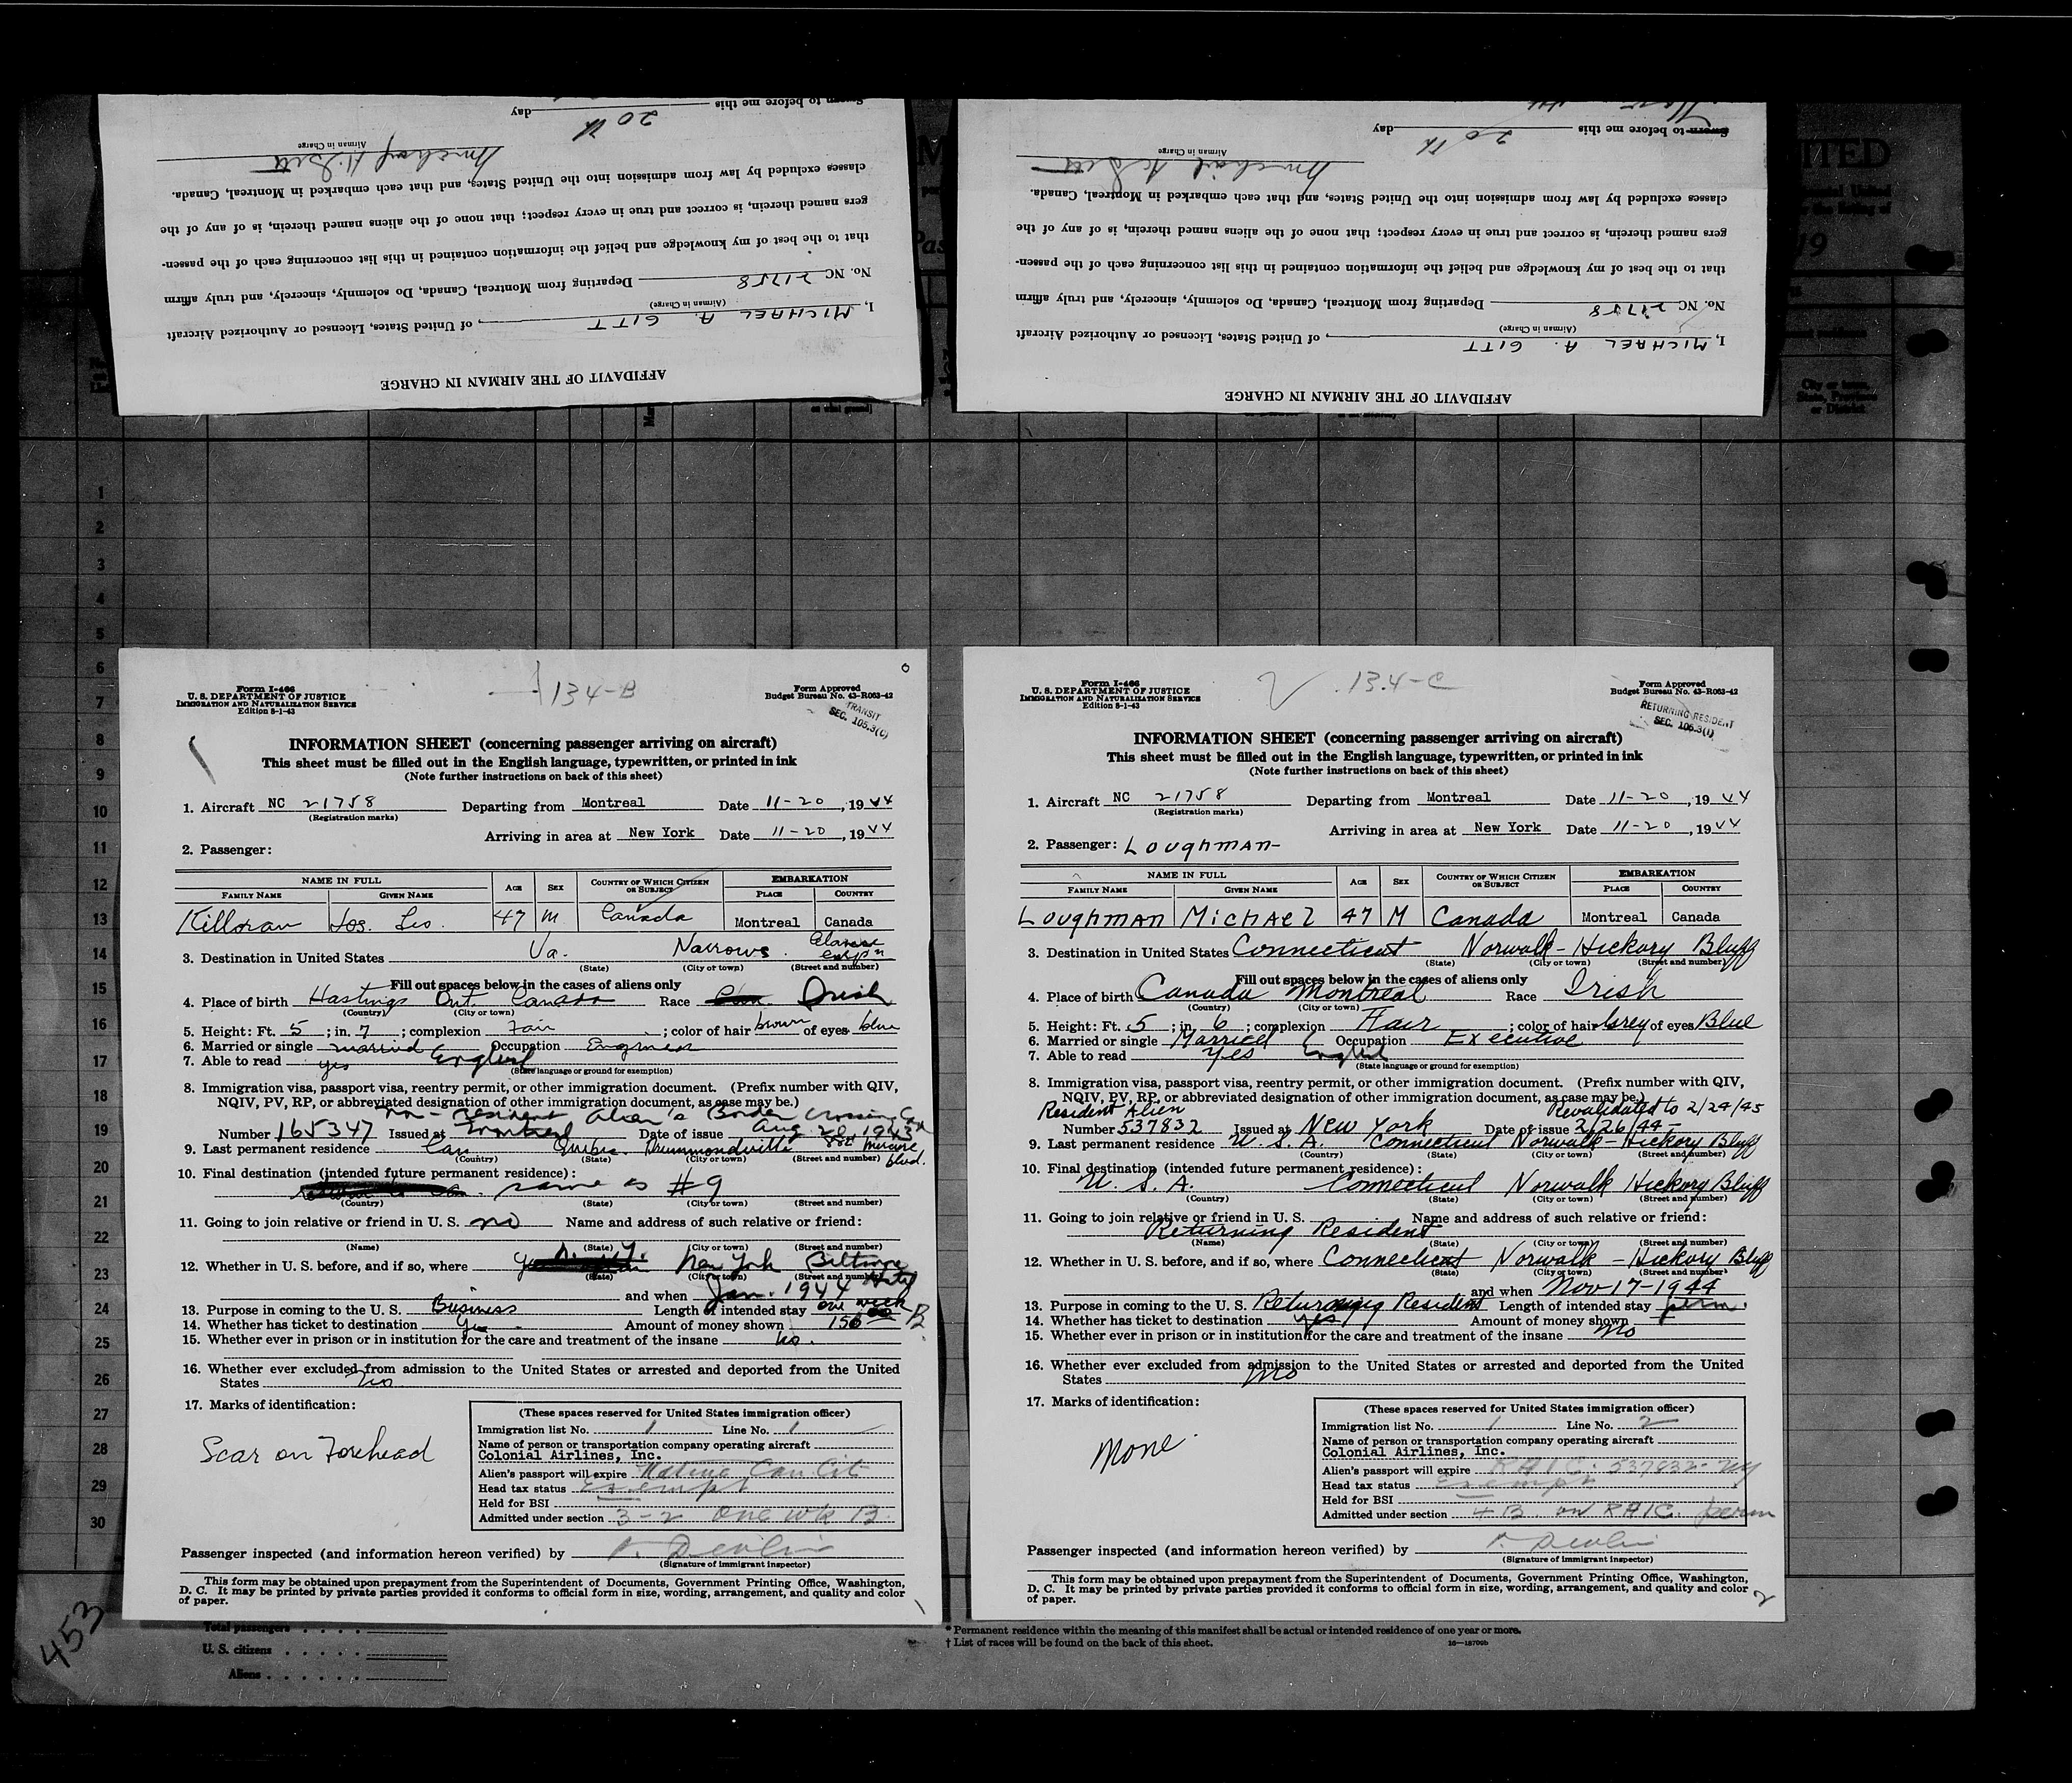 Sworn to before me this 20th day
Airman in Charge
classes excluded by law from admission into the United States, and that each embarked in Montreal, Canada.
gers named therein, is correct and true in every respect; that none of the aliens named therein, is of any of the
that to the best of my knowledge and belief the information contained in this list concerning each of the passen-
No. NC 21758 Departing from Montreal, Canada, Do solemnly, sincerely, and truly affirm
(Airman in Charge)
I, MICHAEL A. GITT, of United States, Licensed or Authorized Aircraft
AFFIDAVIT OF THE AIRMAN IN CHARGE
Sworn to before me this 20th day
Airman in Charge
classes excluded by law from admission into the United States, and that each embarked in Montreal, Canada.
gers named therein, is correct and true in every respect; that none of the aliens named therein, is of any of the
that to the best of my knowledge and belief the information contained in this list concerning each of the passen-
No. NC 21758 Departing from Montreal, Canada, Do solemnly, sincerely, and truly affirm
(Airman in Charge)
I, MICHAEL A. GITT, of United States, Licensed or Authorized Aircraft
AFFIDAVIT OF THE AIRMAN IN CHARGE
City or town,
State, Province
or District
1
2
3
4
5
6
7
8
9
10
11
12
13
14
15
16
17
18
19
20
21
22
23
24
25
26
27
28
29
30
Form I-466
U. S. DEPARTMENT OF JUSTICE
IMMIGRATION AND NATURALIZATION SERVICE
Edition 8-1-43
134-B
Form Approved
Budget Bureau No. 43-R063-42
TRANSIT
SEC. 105.3(C)
INFORMATION SHEET (concerning passenger arriving on aircraft)
This sheet must be filled out in the English language, typewritten, or printed in ink
(Note further instructions on back of this sheet)
1. Aircraft NC 21758 Departing from Montreal Date 11-20, 1944
(Registration marks)
Arriving in area at New York Date 11-20, 1944
2. Passenger:
NAME IN FULL AGE SEX COUNTRY OF WHICH CITIZEN OR SUBJECT EMBARKATION
FAMILY NAME GIVEN NAME PLACE COUNTRY
Killoran Jos. Leo. 47 M Canada Montreal Canada
3. Destination in United States Va. Narrows.
(State) (City or town) (Street and number)
Fill out spaces below in the cases of aliens only
4. Place of birth Hastings Ont. Canada Race Irish
(Country) (City or town)
5. Height: Ft. 5; in. 7; complexion Fair; color of hair brown of eyes blue
6. Married or single married Occupation Engineer
7. Able to read yes English
(State language or ground for exemption)
8. Immigration visa, passport visa, reentry permit, or other immigration document. (Prefix number with QIV,
NQIV, PV, RP, or abbreviated designation of other immigration document, as case may be.)
non-resident alien's Border Crossing
Number 165347 Issued at Montreal Date of issue Aug. 20, 1943
9. Last permanent residence Can Quebec Drummondville blvd.
(Country) (State) (City or town) (Street and number)
10. Final destination (intended future permanent residence):
same as #9
(Country) (State) (City or town) (Street and number)
11. Going to join relative or friend in U. S. no Name and address of such relative or friend:
(Name) (State) (City or town) (Street and number)
12. Whether in U. S. before, and if so, where N.Y. New York Biltmore Hotel
(State) (City or town) (Street and number)
and when Jan. 1944
13. Purpose in coming to the U. S. Business Length of intended stay one week
14. Whether has ticket to destination Yes Amount of money shown 150
15. Whether ever in prison or in institution for the care and treatment of the insane No.
16. Whether ever excluded from admission to the United States or arrested and deported from the United
States No
17. Marks of identification:
Scar on Forehead
(These spaces reserved for United States immigration officer)
Immigration list No. 1 Line No. 1
Name of person or transportation company operating aircraft
Colonial Airlines, Inc.
Alien's passport will expire Native Can Cit
Head tax status Exempt
Held for BSI
Admitted under section 3-2 one wk B
Passenger inspected (and information hereon verified) by P. Devlin
(Signature of immigrant inspector)
This form may be obtained upon prepayment from the Superintendent of Documents, Government Printing Office, Washington,
D. C. It may be printed by private parties provided it conforms to official form in size, wording, arrangement, and quality and color
of paper.
Form I-466
U. S. DEPARTMENT OF JUSTICE
IMMIGRATION AND NATURALIZATION SERVICE
Edition 8-1-43
134-C
Form Approved
Budget Bureau No. 43-R063-42
RETURNING RESIDENT
SEC. 105.3(1)
INFORMATION SHEET (concerning passenger arriving on aircraft)
This sheet must be filled out in the English language, typewritten, or printed in ink
(Note further instructions on back of this sheet)
1. Aircraft NC 21758 Departing from Montreal Date 11-20, 1944
(Registration marks)
Arriving in area at New York Date 11-20, 1944
2. Passenger: LoughMAN-
NAME IN FULL AGE SEX COUNTRY OF WHICH CITIZEN OR SUBJECT EMBARKATION
FAMILY NAME GIVEN NAME PLACE COUNTRY
LOUGHMAN MICHAEL 47 M Canada Montreal Canada
3. Destination in United States Connecticut Norwalk - Hickory Bluff
(State) (City or town) (Street and number)
Fill out spaces below in the cases of aliens only
4. Place of birth Canada Montreal Race Irish
(Country) (City or town)
5. Height: Ft. 5; in. 6; complexion Fair; color of hair Grey of eyes Blue
6. Married or single Married Occupation Executive
7. Able to read Yes English
(State language or ground for exemption)
8. Immigration visa, passport visa, reentry permit, or other immigration document. (Prefix number with QIV,
NQIV, PV, RP, or abbreviated designation of other immigration document, as case may be.)
Resident Alien Revalidated to 2/24/45
Number 537832 Issued at New York Date of issue 2/26/44-
9. Last permanent residence U. S. A. Connecticut Norwalk - Hickory Bluff
(Country) (State) (City or town) (Street and number)
10. Final destination (intended future permanent residence):
U. S. A. Connecticut Norwalk Hickory Bluff
(Country) (State) (City or town) (Street and number)
11. Going to join relative or friend in U. S. Name and address of such relative or friend:
Returning Resident
(Name) (State) (City or town) (Street and number)
12. Whether in U. S. before, and if so, where Connecticut Norwalk - Hickory Bluff
(State) (City or town) (Street and number)
and when Nov-17-1944
13. Purpose in coming to the U. S. Returning Resident Length of intended stay perm.
14. Whether has ticket to destination Yes Amount of money shown
15. Whether ever in prison or in institution for the care and treatment of the insane No
16. Whether ever excluded from admission to the United States or arrested and deported from the United
States No
17. Marks of identification:
None.
(These spaces reserved for United States immigration officer)
Immigration list No. 1 Line No. 2
Name of person or transportation company operating aircraft
Colonial Airlines, Inc.
Alien's passport will expire RAIC. 537832- NY
Head tax status Exempt
Held for BSI
Admitted under section 4B on RAIC perm
Passenger inspected (and information hereon verified) by P. Devlin
(Signature of immigrant inspector)
This form may be obtained upon prepayment from the Superintendent of Documents, Government Printing Office, Washington,
D. C. It may be printed by private parties provided it conforms to official form in size, wording, arrangement, and quality and color
of paper.
2
453
Total passengers
U. S. citizens
Aliens
* Permanent residence within the meaning of this manifest shall be actual or intended residence of one year or more.
† List of races will be found on the back of this sheet.